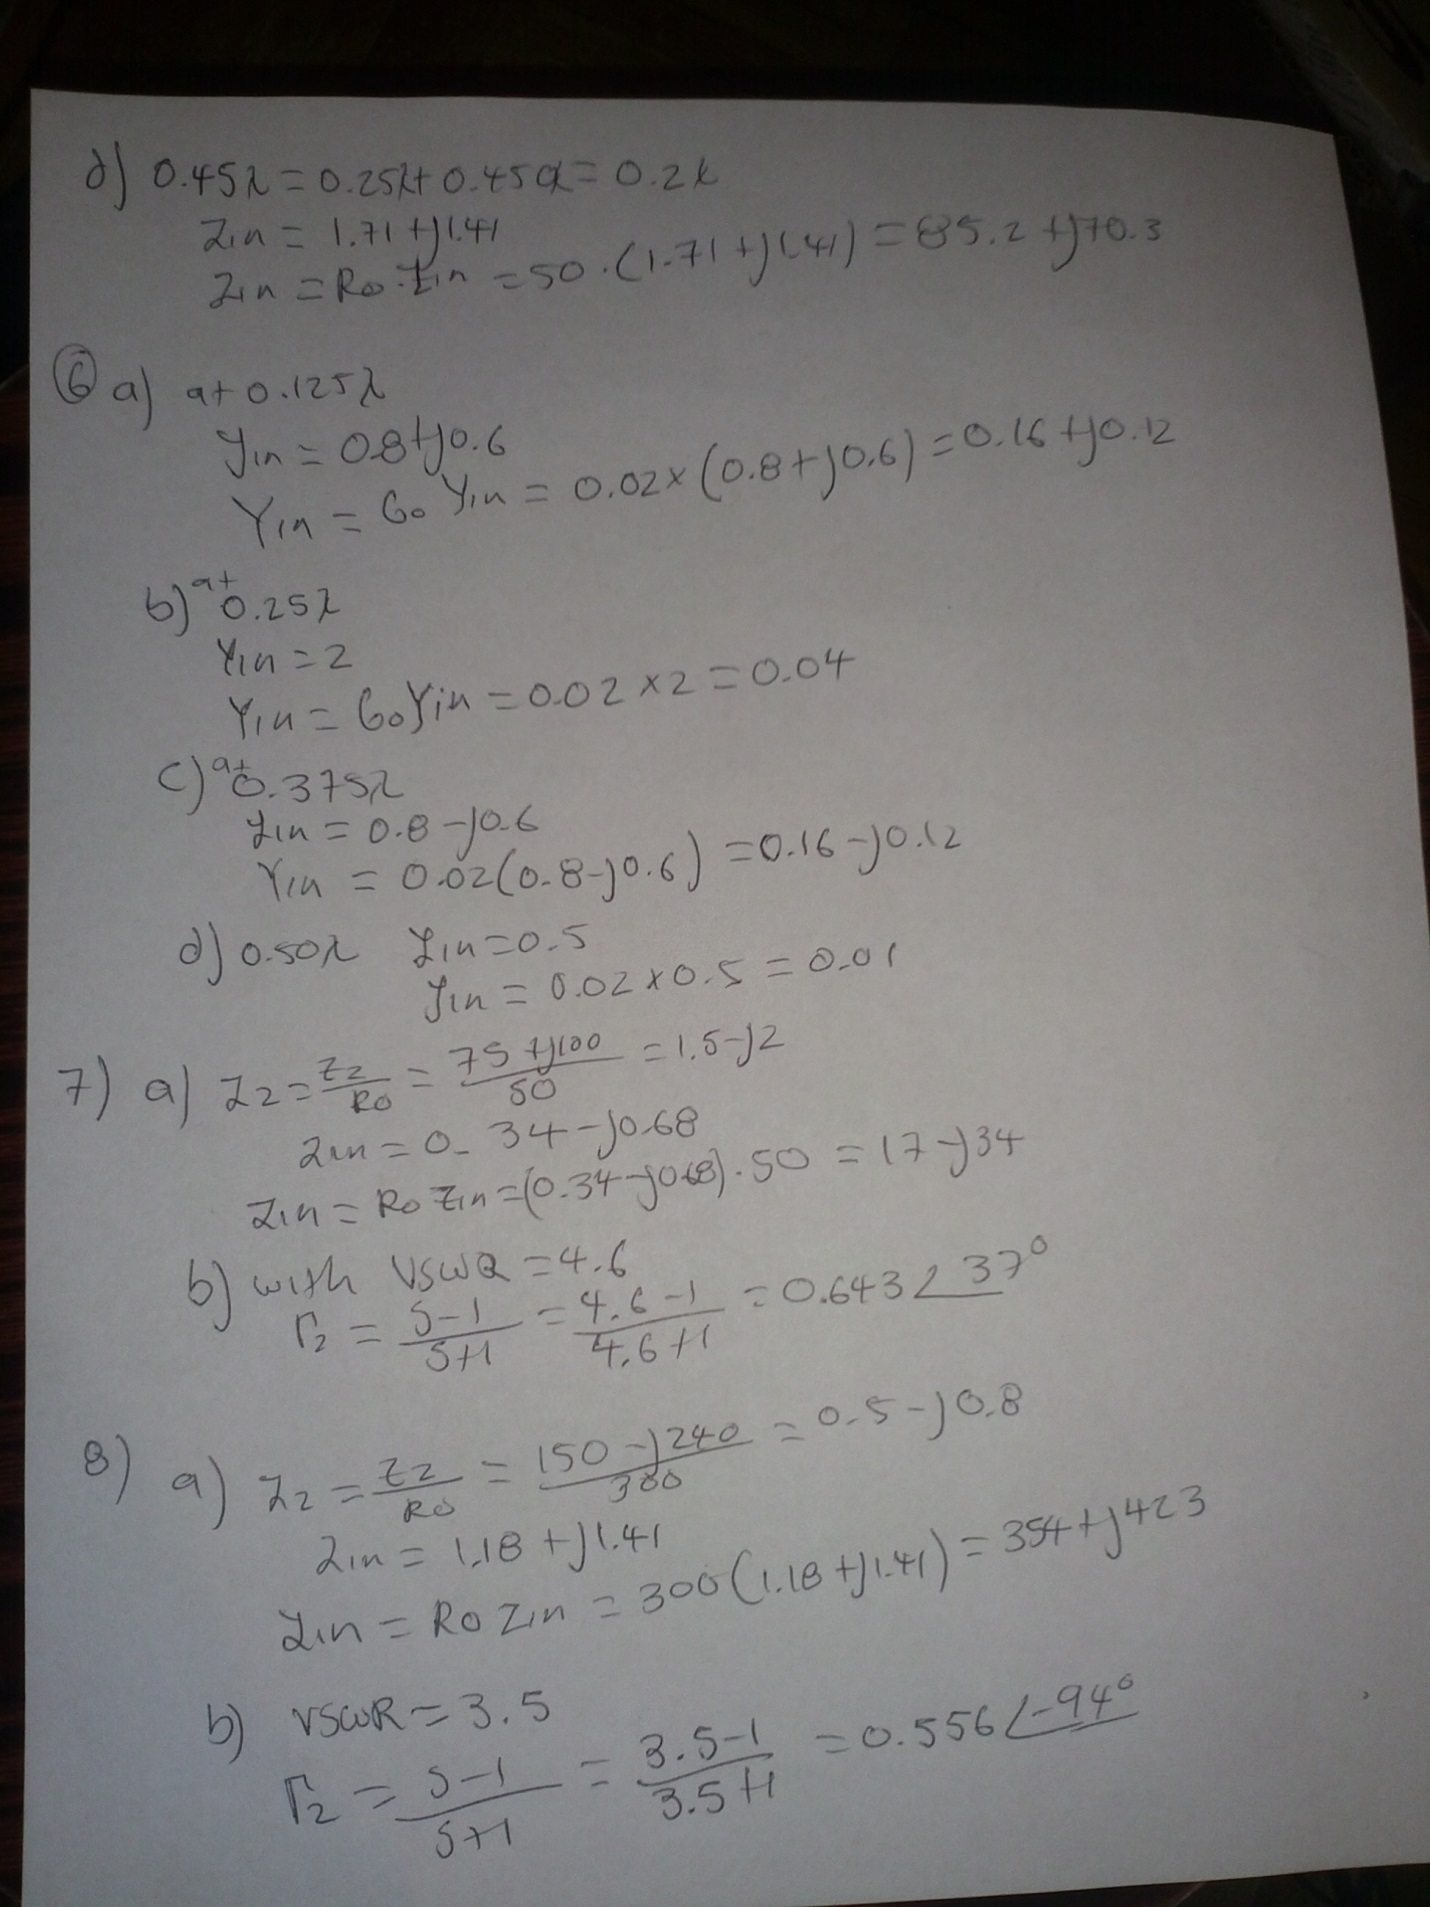 d) 0.45λ = 0.25λ + 0.450λ = 0.2λ
Zin = 1.71 + j1.41
Zin = Ro·Zin = 50·(1.71 + j1.41) = 85.2 + j70.3
6 a) at 0.125λ
yin = 0.8 + j0.6
Yin = Go Yin = 0.02 × (0.8 + j0.6) = 0.16 + j0.12
b) at 0.25λ
Yin = 2
Yin = GoYin = 0.02 × 2 = 0.04
c) at 0.375λ
yin = 0.8 - j0.6
Yin = 0.02(0.8 - j0.6) = 0.16 - j0.12
d) 0.50λ yin = 0.5
yin = 0.02 × 0.5 = 0.01
7) a) Z2 = Z2/Ro = 75 + j100/50 = 1.5 - j2
Zin = 0.34 - j0.68
Zin = Ro Zin = (0.34 - j0.68)·50 = 17 - j34
b) with VSWR = 4.6
Γ2 = S-1/S+1 = 4.6-1/4.6+1 = 0.643∠37°
8) a) Z2 = Z2/Ro = 150 - j240/300 = 0.5 - j0.8
Zin = 1.18 + j1.41
Zin = Ro Zin = 300(1.18 + j1.41) = 354 + j423
b) VSWR = 3.5
Γ2 = S-1/S+1 = 3.5-1/3.5+1 = 0.556∠-94°